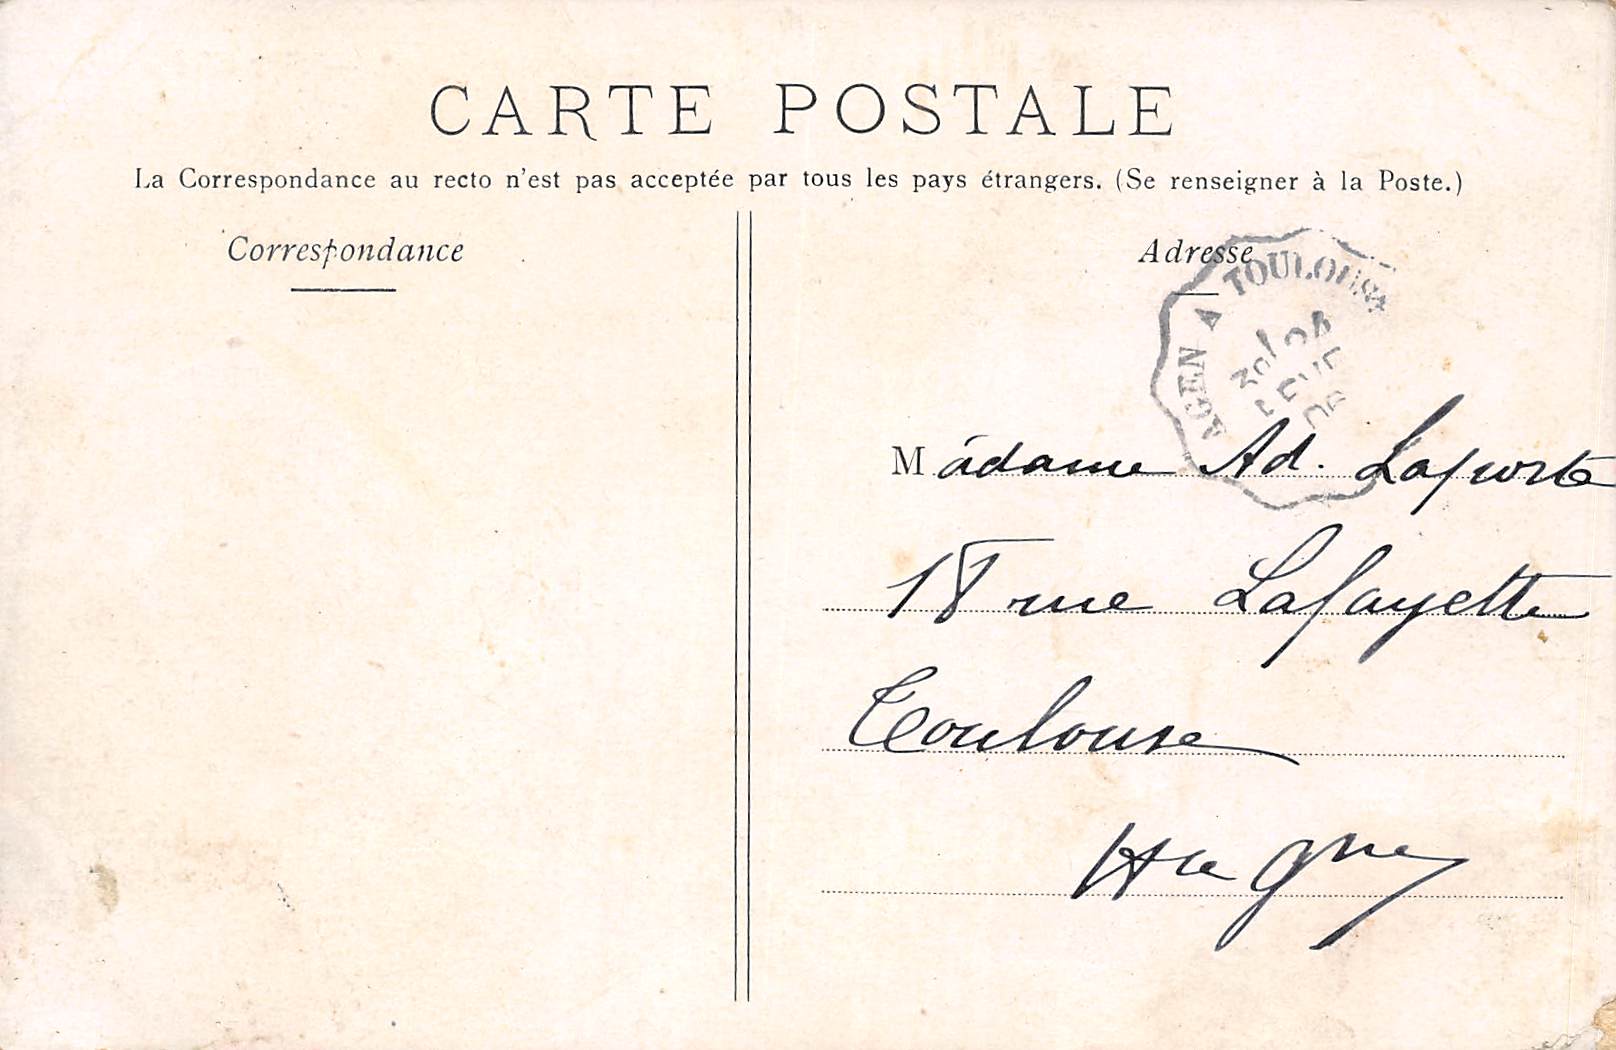 CARTE POSTALE
La Correspondance au recto n'est pas acceptée par tous les pays étrangers. (Se renseigner à la Poste.)
Correspondance
Adresse
AGEN A TOULOUSE
Madame Ad. Laporte
18 rue Lafayette
Toulouse
Hte Gne